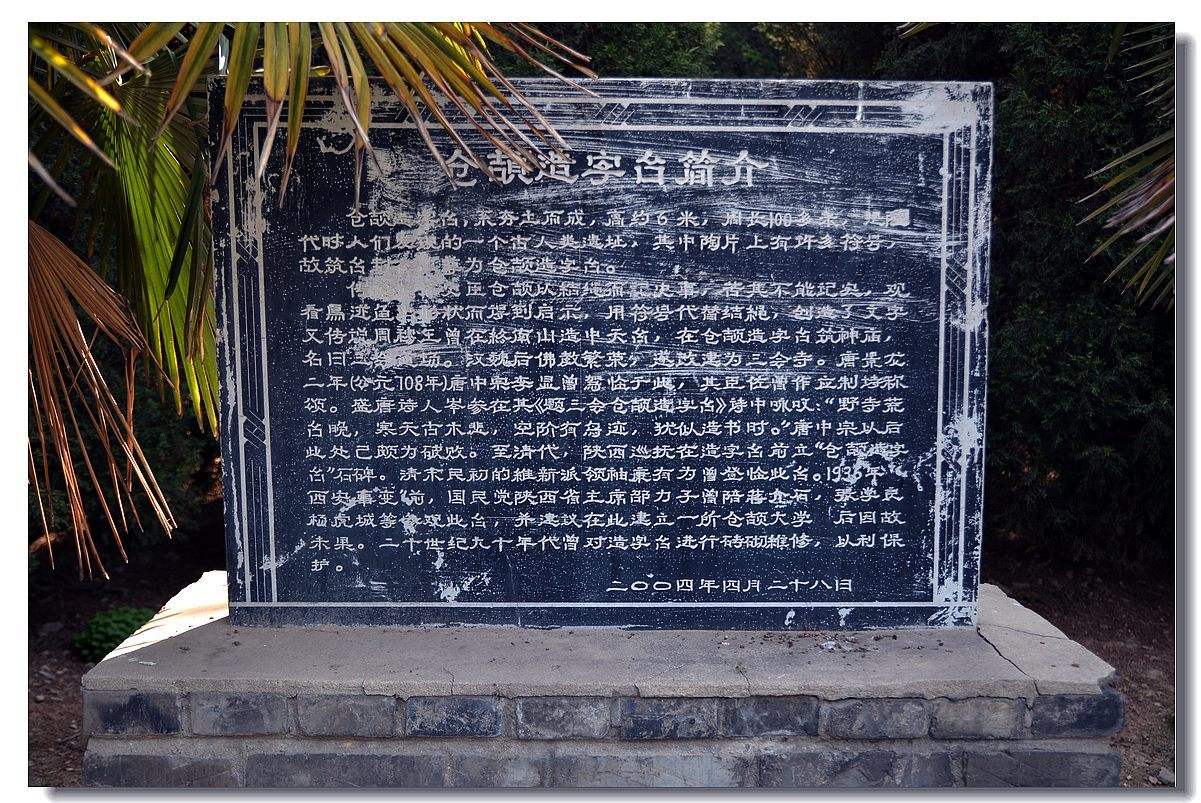 仓颉造字台简介
仓颉造字台，系夯土而成，高约6米，周长100多米，是
代时人们发现的一个古人类遗址，其中陶片上有许多符号，
故筑台 为仓颉造字台。
臣仓颉以结绳而 史事，苦其不能记实，观
看鸟迹鱼 形状而得到启示，用符号代替结绳，创造了文字
又传说周穆王曾在终南山造中天台，在仓颉造字台筑神庙，
名曰三会道场。汉魏后佛教繁荣，遂改建为三会寺。唐景龙
二年(公元708年)唐中宗李显曾驾临于此，其臣佐曾作应制诗称
颂。盛唐诗人岑参在其《题三会仓颉造字台》诗中咏叹：“野寺荒
台晚，寒天古木悲，空阶有鸟迹，犹似造书时。”唐中宗以后
此处已颇为破败。至清代，陕西巡抚在造字台前立“仓颉造字
台”石碑。清末民初的维新派领袖康有为曾登临此台。1936年
西安事变前，国民党陕西省主席邵力子曾陪蒋介石，张学良
杨虎城等参观此台，并建议在此建立一所仓颉大学 后因故
未果。二十世纪九十年代曾对造字台进行砖砌维修，以利保
护。
二〇〇四年四月二十八日